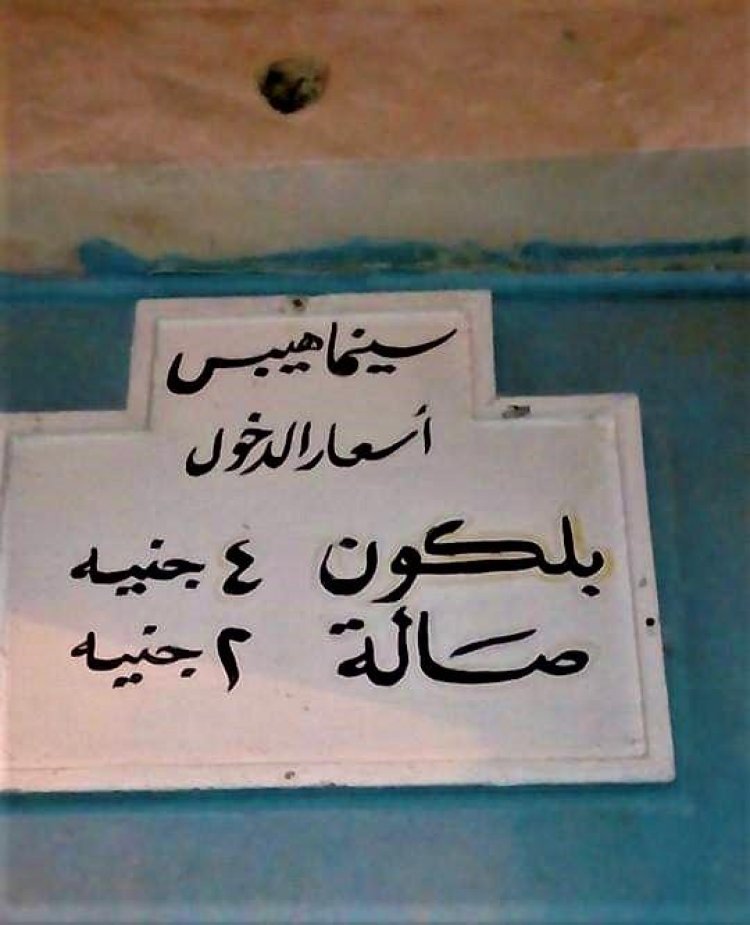 سينما هيبس
أسعار الدخول
بلكون ٤ جنيه
صالة ٢ جنيه